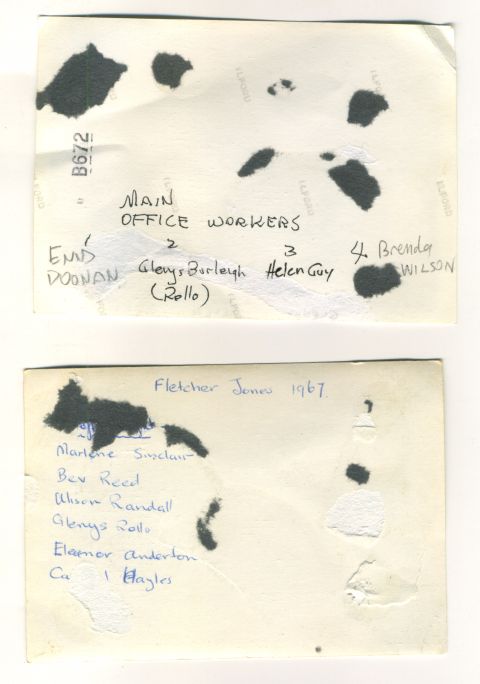 ILFORD
ILFORD
ILFORD
B672
ILFORD
ILFORD
ILFORD
ILFORD
MAIN
OFFICE WORKERS
1 2 3 4
ENID DOONAN
Glenys Burleigh (Rollo)
Helen Guy
Brenda WILSON
Fletcher Jones 1967.
Marlene Sinclair
Bev Reed
Alison Randall
Glenys Rollo
Eleanor Anderton
Ca l Hayles